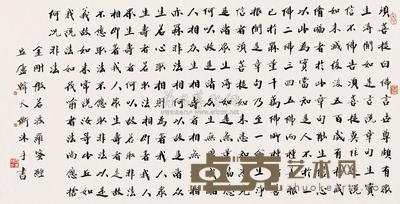 須菩提白佛言世尊頗有眾
生得聞如是言說章句生實
信不佛告須菩提莫作是說
如來滅後後五百歲有持戒
修福者於此章句能生信心
以此為實當知是人不於一
佛二佛三四五佛而種善根
已於無量千萬佛所種諸善
根聞是章句乃至一念生淨
信者須菩提如來悉知悉見
是諸眾生得如是無量福德
何以故是諸眾生無復我相
人相眾生相壽者相無法相
亦無非法相何以故是諸眾
生若心取相即為著我人眾
生壽者若取法相即著我人
眾生壽者何以故若取非法
相即著我人眾生壽者是故
不應取法不應取非法以是
義故如來常說汝等比丘知
我說法如筏喻者法尚應捨
何況非法
金剛般若波羅蜜經
豆廬韓天衡沐手書
卓克艺术网